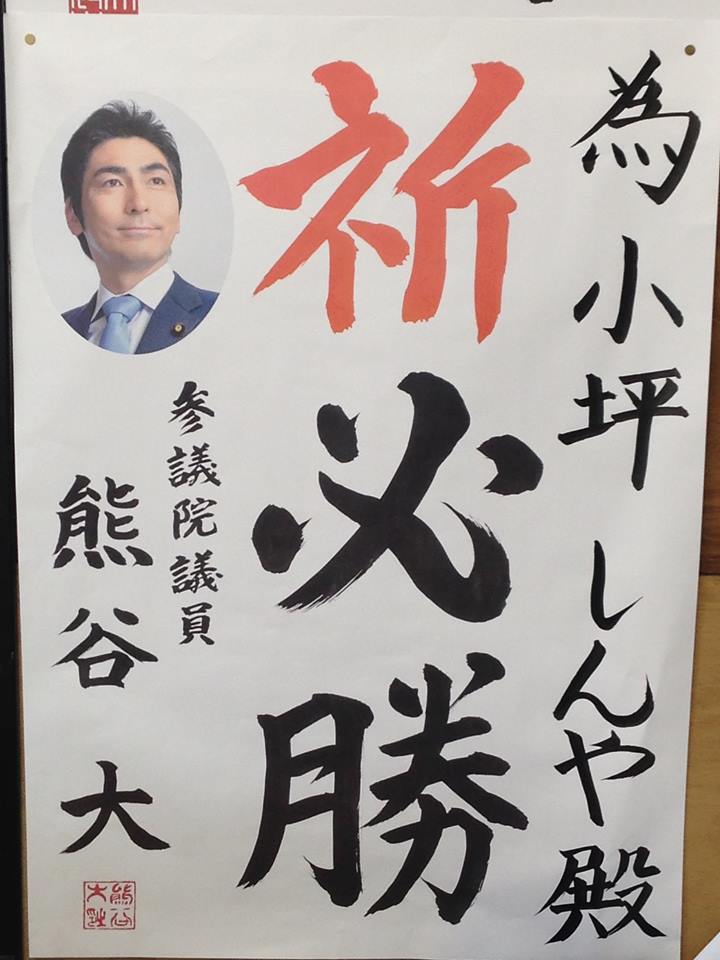 為小坪しんや殿
祈必勝
参議院議員
熊谷大
熊谷
大